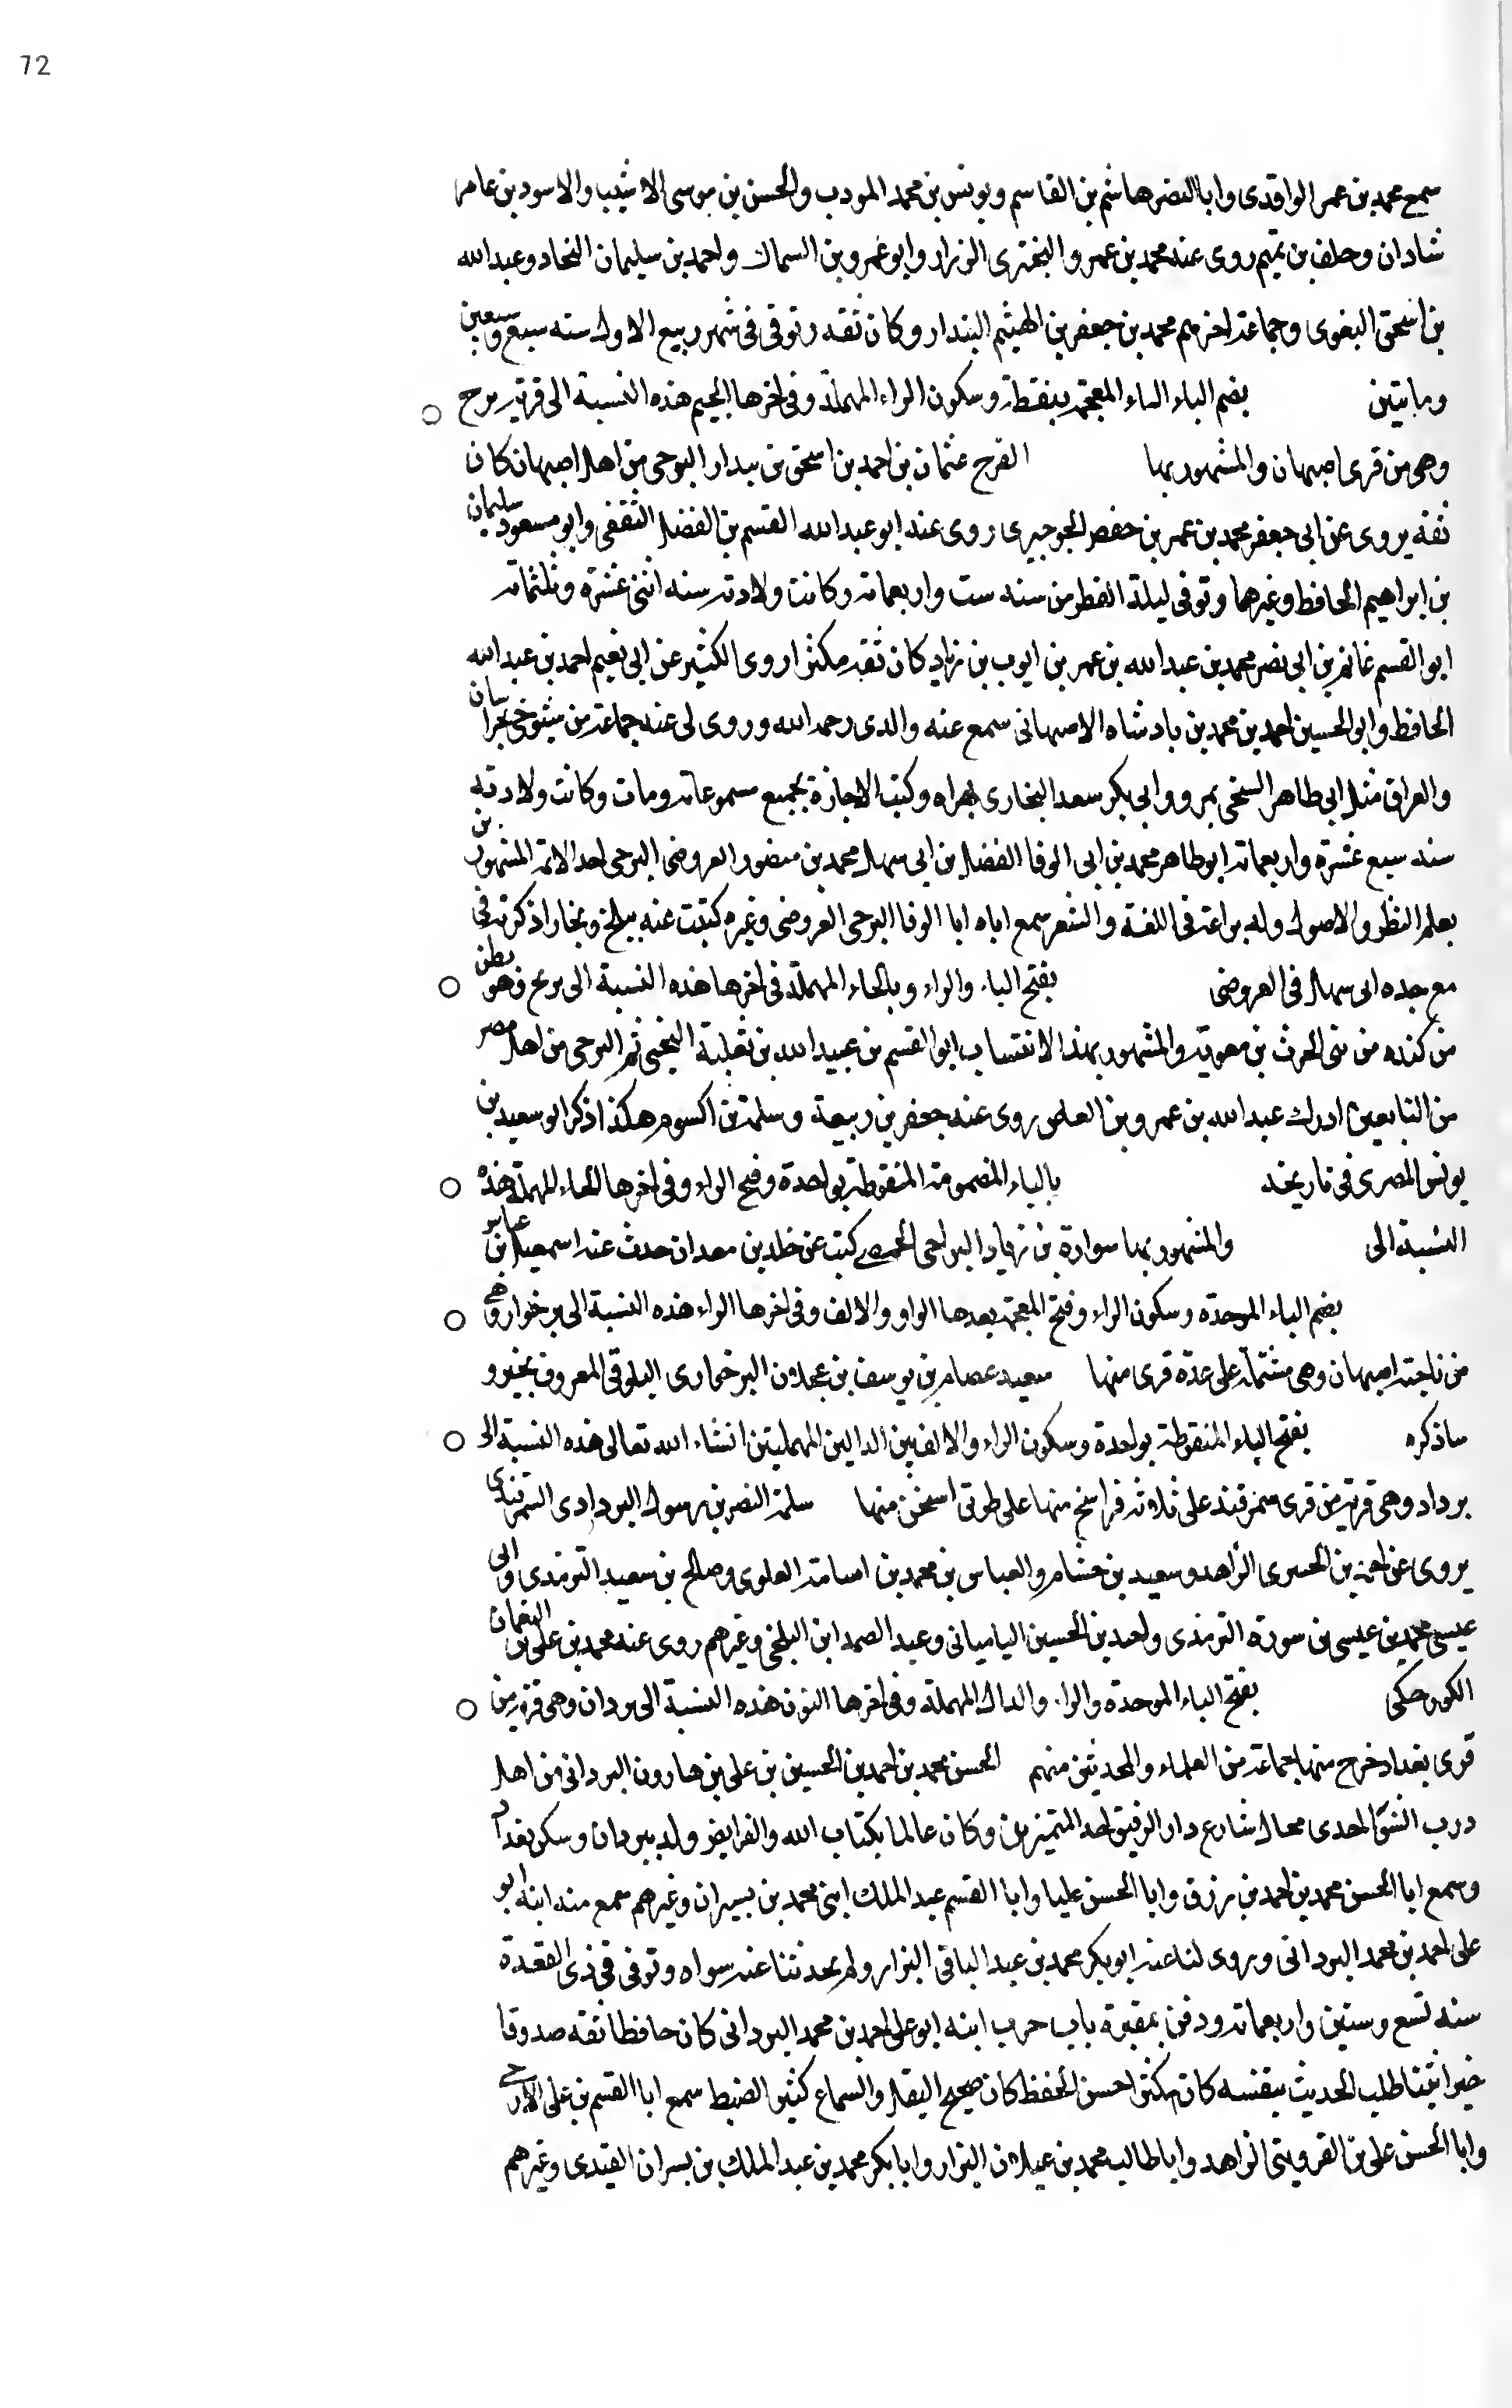 72
سمع محمد بن عمر الواقدى وابا النضر هاشم بن القاسم ويونس بن محمد المودب والحسن بن موسى الاشيب والاسود بن عامر
شادان وخلف بن تميم روى عنه محمد بن عمرو البخترى الرزاز وابو عمرو بن السماك واحمد بن سليمان النجاد وعبد الله
بن اسحق البغوى وجماعة اخرهم محمد بن جعفر بن الهيثم البندار وكان ثقة وتوفى فى شهر ربيع الاول سنه سبع وسبعين
وماىتين بضم الباء الباء المعجمة بنقطة وسكون الراء المهملة وفى اخرها الجيم هذه النسبة الى قرية برج
وهى من قرى اصبهان والمشهور بها الفرج عثمان بن احمد بن اسحق بن بندار البرجى من اهل اصبهان كان
ثقة يروى عن ابى جعفر محمد بن عمر بن حفص الجورجيرى روى عنه ابو عبد الله القسم بن الفضل الثقفى وابو مسعود سليمان
بن ابراهيم الحافظ وغيرها وتوفى ليلة الفطر من سنه ست واربعماىه وكانت ولادته سنه اثنى عشرة وثلثماىه
ابو القسم غانم بن ابى نصر محمد بن عبد الله بن عمر بن ايوب بن زياد كان ثقة مكثرا روى الكثير عن ابى نعيم احمد بن عبد الله
الحافظ وابو الحسين احمد بن محمد بن بادشاه الاصبهانى سمع عنه والدى رحمه الله وروى لى عنه جماعة من شيوخى بخراسان
والعراق مثل ابى طاهر السنجى بمرو وابى بكر سعد البخارى بهراه وكتب الاجازة بجميع مسموعاته ومات وكانت ولادته
سنه سبع عشرة واربعماىه ابو طاهر محمد بن ابى الوفا الفضل بن ابى سهل محمد بن منصور العروضى البرجى احد الائمة المشهورين
بعلم النظر والاصول وله براعة فى اللغة والشعر سمع اباه ابا الوفا البرجى العروضى وغيره كتبت عنه ببلخ وبخارا ذكرته فى
مع جده ابى سهل فى العروضى بفتح الباء والراء وبالحاء المهملة فى اخرها هذه النسبة الى برح وهو بطن
من كنده من بنى الحرث بن معوية والمشهور بهذا الانتساب ابو القسم بن عبيد الله بن ثعلبة التجيبى ثم البرحى من اهل مصر
من التابعين ادرك عبد الله بن عمرو بن العاص روى عنه جعفر بن ربيعة وسلمة بن اكسوم هكذا ذكر ابو سعيد بن
يونس المصرى فى تاريخه بالباء المضمومة المنقوطة بواحدة وفتح الراء وفى اخرها الحاء المهملة هذه
النسبة الى والمشهور بها سوادة بن زياد البراحى الحمصى كتب عن خلد بن معدان حدث عنه اسمعيل بن عياش
بضم الباء الموحدة وسكون الراء وفتح المعجمة بعدها الواو والالف وفى اخرها الراء هذه النسبة الى برخوار وهى
من ناحية اصبهان وهى مشتملة على عدة قرى منها سعيد عصام بن يوسف بن عجلان البرخوارى المعروف بخيرو
ساذكره بفتح الباء المنقوطة بواحدة وسكون الراء والالف بين الدالين المهملتين انشاء الله تعالى هذه النسبة الى
برداد وهى قرية من قرى سمرقند على ثلاثة فراسخ منها على طوقى اسخن منها سلمة النضر بن رسول البردادى السمرقندى
يروى عن الحسرى الزاهد وسعيد بن خشنام والعباس بن محمد بن اسامة العلوى وصالح بن سعيد الترمذى وابى
عيسى محمد بن عيسى بن سورة الترمذى واحمد بن الحسين اليامىانى وعبد الصمد ابن البلخى وغيرهم روى عنه محمد بن على بن النعمان
بفتح الباء الموحدة والراء والدال المهملة وفى اخرها النون هذه النسبة الى بردان وهى قرية من
قرى بغداد خرج منها جماعة من العلماء والمحدثين منهم الحسن محمد بن احمد بن الحسين بن على بن هارون البردانى من اهل
درب احدى محال شارع دار الرقيق احد المتميزين وكان عالما بكتاب الله والفرايض ولد ببردان وسكن بغداد
وسمع ابا الحسن محمد بن احمد بن رزق وابا الحسن عليا وابا القسم عبد الملك ابنى محمد بن بشران وغيرهم سمع منه ابنه ابو
على احمد بن محمد البردانى وروى لنا عنه ابو بكر محمد بن عبد الباقى البزار ولم يحدثنا عنه سواه وتوفى فى ذى القعدة
سنه تسع وستين واربعماىه ودفن بمقبرة باب حرب ابنه ابو على احمد بن محمد البردانى كان حافظا ثقة صدوقا
خيرا ثبتا طلب الحديث بنفسه كان مكثرا حسن الحفظ كان صحيح النقل والسماع كثير الضبط سمع ابا القسم بن على الازجى
وابا الحسن على بن القزوينى الزاهد وابا طالب محمد بن غيلان البزار وابا بكر محمد بن عبد الملك بن بشران القندى وغيرهم